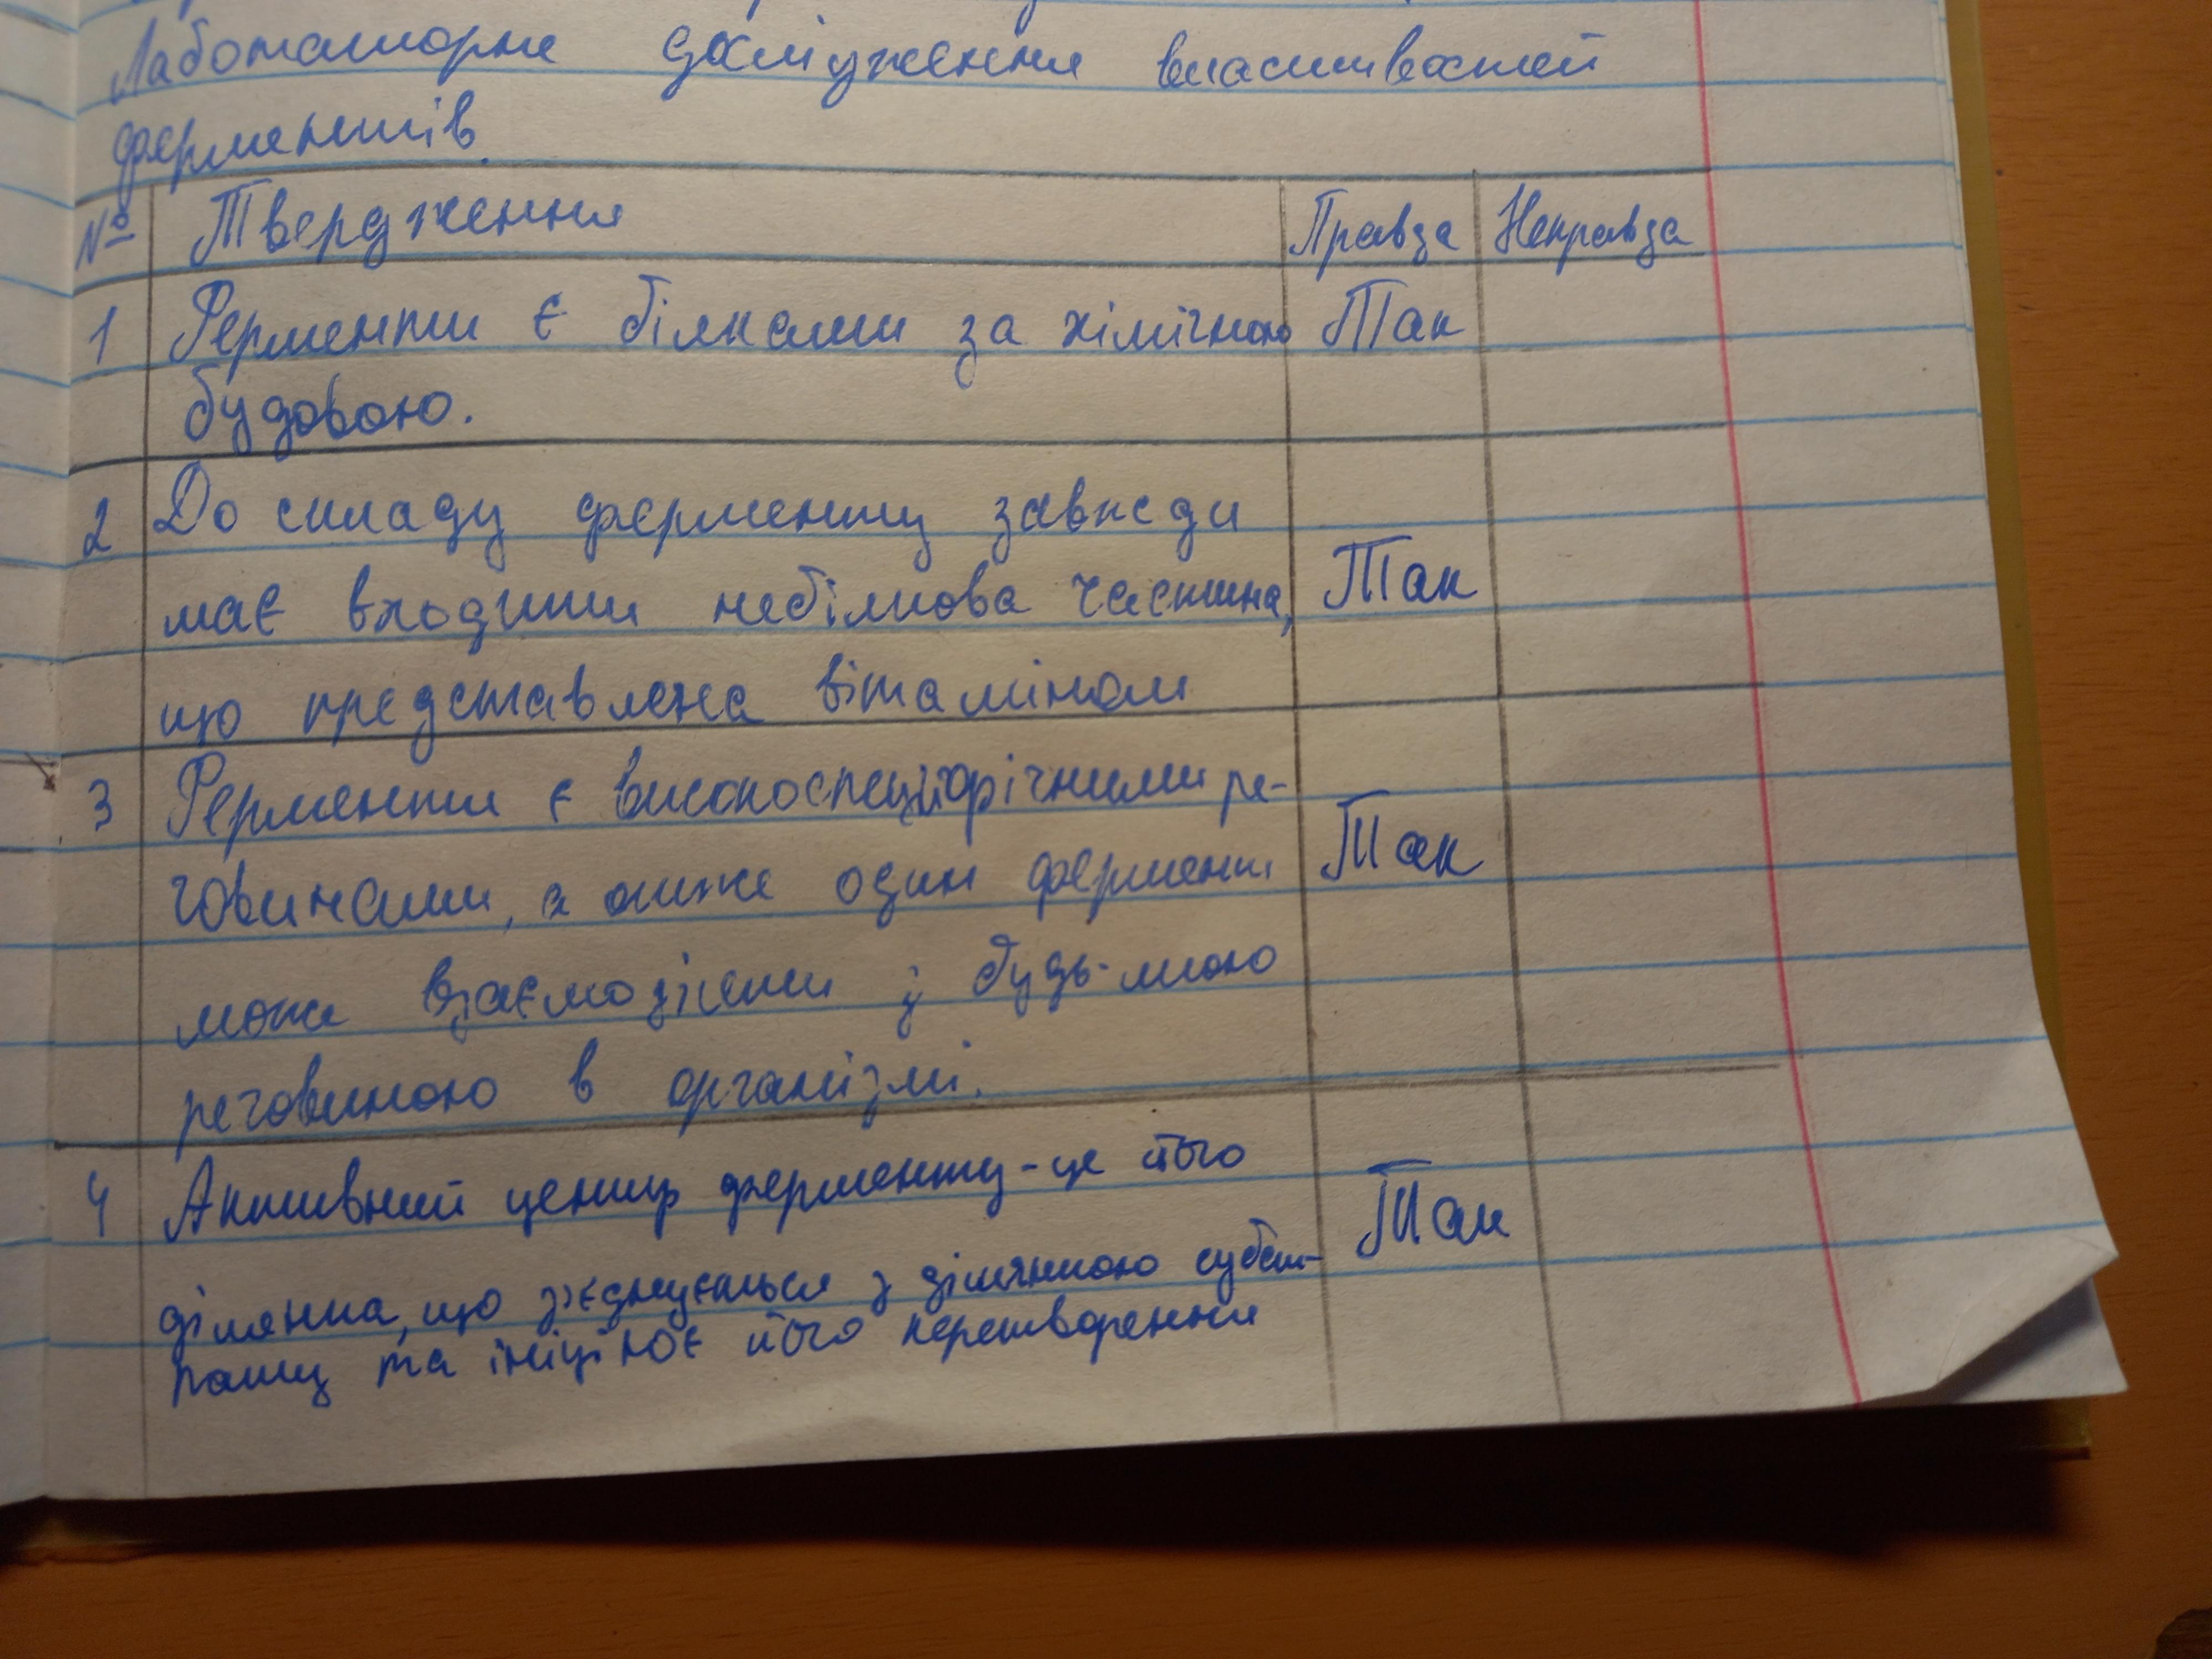 Лабораторне дослідження властивостей
ферментів.
№ Твердження Правда Неправда
1 Ферменти є білками за хімічною Так
будовою.
2 До складу ферменту завжди
має входити небілкова частина, Так
що представлена вітаміном
3 Ферменти є високоспецифічними ре-
човинами, а отже один фермент Так
може взаємодіяти з будь-якою
речовиною в організмі.
4 Активний центр ферменту - це його
ділянка, що з'єднується з ділянкою субст- Так
рату та ініціює його перетворення